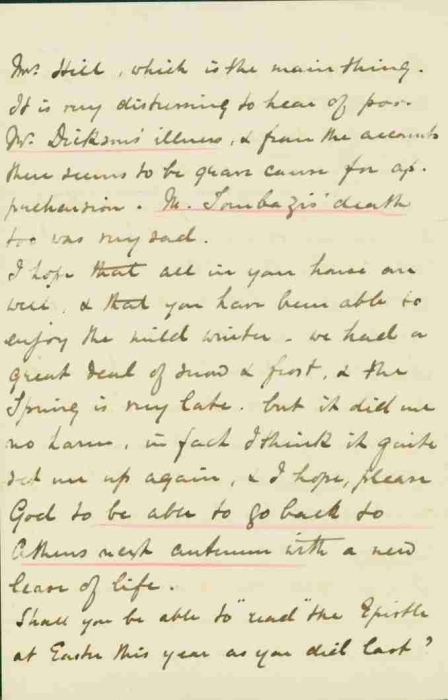 Mrs. Hill, which is the main thing.
It is very distressing to hear of poor
Mr. Dickson's illness, & from the accounts
there seems to be grave cause for ap-
prehension. M. Tombazis' death
too was very sad.
I hope that all in your house are
well, & that you have been able to
enjoy the mild winter. we had a
great deal of snow & frost, & the
Spring is very late. but it did me
no harm, in fact I think it quite
set me up again, & I hope, please
God to be able to go back to
Athens next autumn with a new
lease of life.
Shall you be able to "read" the Epistle
at Easter this year as you did last?